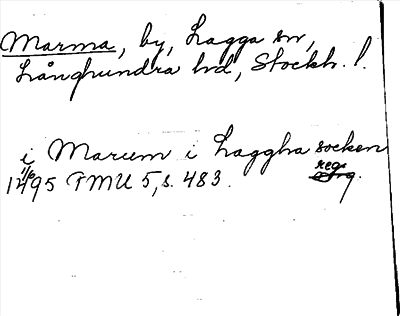 Marma, by, Lagga sn,
Långhundra hd, Stockh. l.
i Marum i Laggha socken
1495 FMU 5, s. 483. reg.